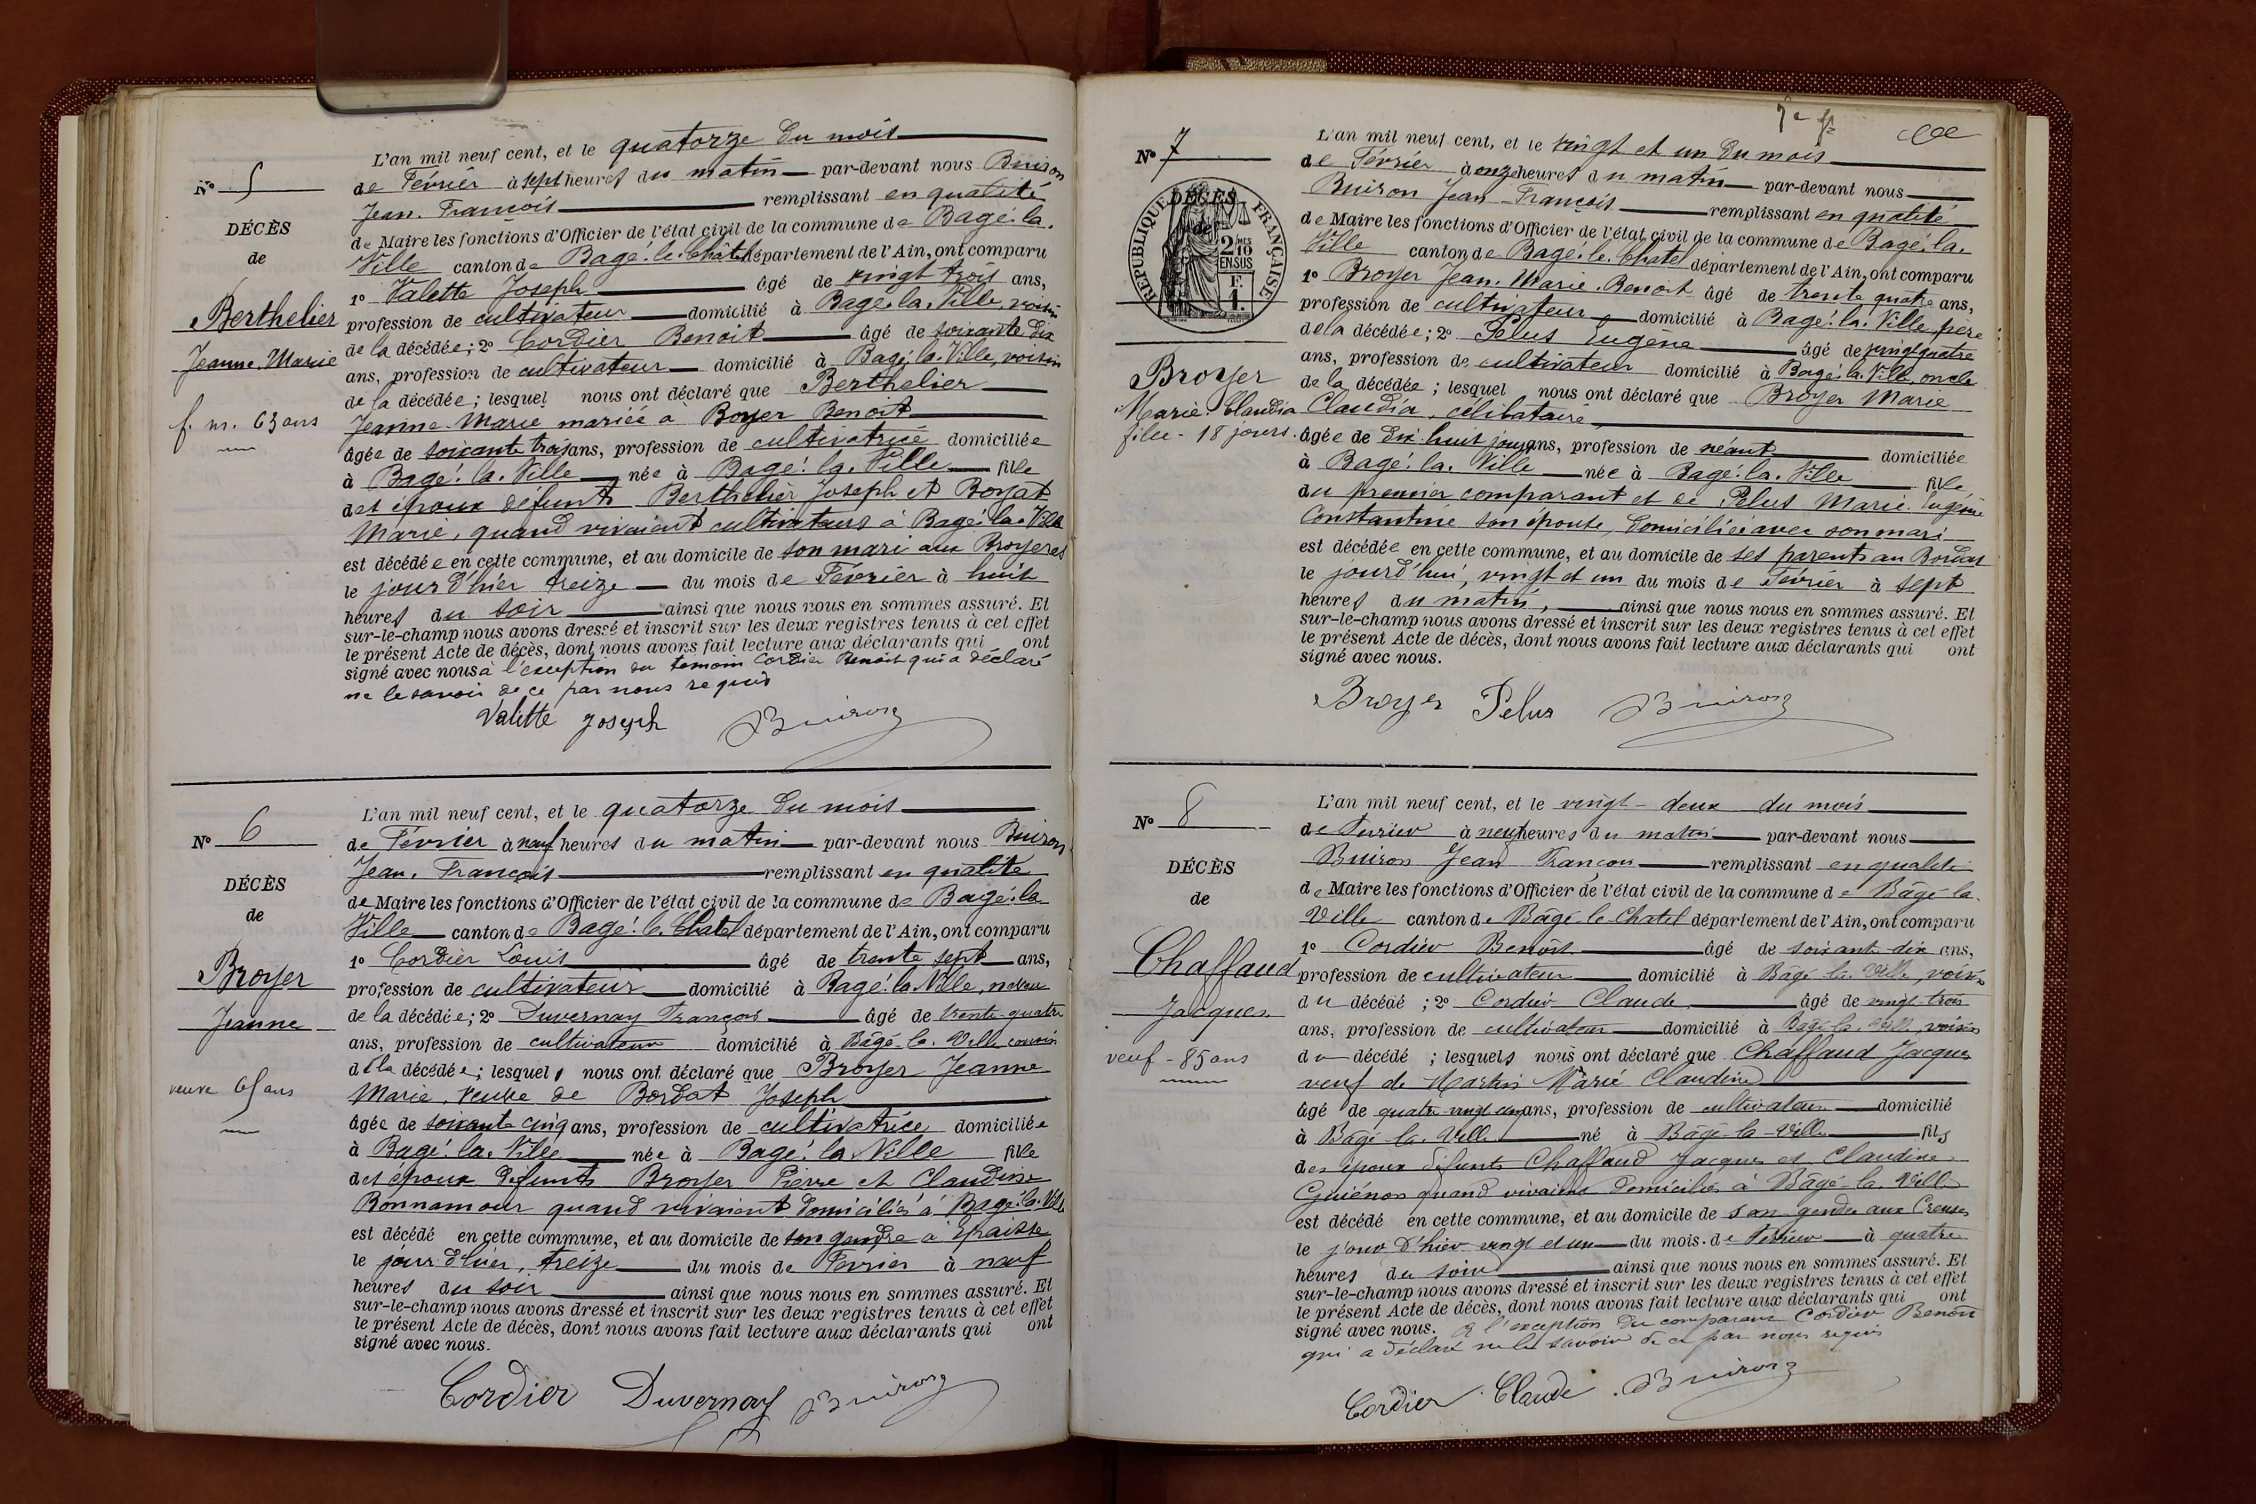 N° 5
DÉCÈS
de
Berthelier
Jeanne Marie
f. m. 63 ans
L'an mil neuf cent, et le quatorze du mois
de Février à sept heures du matin par-devant nous Buiron
Jean. François remplissant en qualité
de Maire les fonctions d'Officier de l'état civil de la commune de Bagé-la-
Ville canton de Bagé-le-Châtel département de l'Ain, ont comparu
1° Valette Joseph âgé de vingt trois ans,
profession de cultivateur domicilié à Bagé-la-Ville, voisin
de la décédée; 2° Cordier Benoit âgé de soixante dix
ans, profession de cultivateur domicilié à Bagé-la-Ville, voisin
de la décédée; lesquel nous ont déclaré que Berthelier
Jeanne-Marie mariée à Boyer Benoit
âgée de soixante trois ans, profession de cultivatrice domiciliée
à Bagé-la-Ville née à Bagé-la-Ville fille
des époux defunts Berthelier Joseph et Boyat
Marie, quand vivaient cultivateurs à Bagé-la-Ville
est décédée en cette commune, et au domicile de son mari aux Broyeres
le jour d'hier treize du mois de Février à huit
heures du soir ainsi que nous nous en sommes assuré. Et
sur-le-champ nous avons dressé et inscrit sur les deux registres tenus à cet effet
le présent Acte de décès, dont nous avons fait lecture aux déclarants qui ont
signé avec nous à l'exception du temoin Cordier Benoit qui a déclaré
ne le savoir de ce par nous requis
Valette Joseph Buiron
N° 6
DÉCÈS
de
Broyer
Jeanne
veuve 65 ans
L'an mil neuf cent, et le quatorze du mois
de Février à neuf heures du matin par-devant nous Buiron
Jean. François remplissant en qualité
de Maire les fonctions d'Officier de l'état civil de la commune de Bagé-la
Ville canton de Bagé-le-Chatel département de l'Ain, ont comparu
1° Cordier Louis âgé de trente sept ans,
profession de cultivateur domicilié à Bagé-la-Ville, neveu
de la décédée; 2° Duvernay François âgé de trente-quatre
ans, profession de cultivateur domicilié à Bâgé-la-Ville cousin
de la décédée; lesquels nous ont déclaré que Broyer Jeanne
Marie, veuve de Bordat Joseph
âgée de soixante cinq ans, profession de cultivatrice domiciliée
à Bagé-la-Ville née à Bagé-la-Ville fille
des époux défunts Broyer Pierre et Claudine
Bonnamour quand vivaient domiciliés à Bagé-la-Ville
est décédé en cette commune, et au domicile de son gendre à Epaisse
le jour d'hier, treize du mois de Fevrier à neuf
heures du soir ainsi que nous nous en sommes assuré. Et
sur-le-champ nous avons dressé et inscrit sur les deux registres tenus à cet effet
le présent Acte de décès, dont nous avons fait lecture aux déclarants qui ont
signé avec nous.
Cordier Duvernay Buiron
N° 7
DÉCÈS
de
RÉPUBLIQUE FRANÇAISE
2/10 EN SUS
F. 1.
Broyer
Marie-Claudia
fille - 18 jours.
L'an mil neuf cent, et le vingt et un du mois
de Février à onze heures du matin par-devant nous
Buiron Jean-François remplissant en qualité
de Maire les fonctions d'Officier de l'état civil de la commune de Bagé-la-
Ville canton de Bagé-le-Chatel département de l'Ain, ont comparu
1° Broyer Jean-Marie-Benoit âgé de trente quatre ans,
profession de cultivateur domicilié à Bagé-la-Ville pere
de la décédée; 2° Pelus Eugène âgé de vingt quatre
ans, profession de cultivateur domicilié à Bagé-la-Ville, oncle
de la décédée; lesquel nous ont déclaré que Broyer Marie
Claudia, célibataire,
âgée de dix-huit jours ans, profession de néant domiciliée
à Bagé-la-Ville née à Bagé-la-Ville fille
du premier comparant et de Pelus Marie-Eugénie
Constantine son épouse, domiciliée avec son mari
est décédée en cette commune, et au domicile de ses parents au Bordat
le jourd'hui, vingt et un du mois de Février à sept
heures du matin, ainsi que nous nous en sommes assuré. Et
sur-le-champ nous avons dressé et inscrit sur les deux registres tenus à cet effet
le présent Acte de décès, dont nous avons fait lecture aux déclarants qui ont
signé avec nous.
Broyer Pelus Buiron
N° 8
DÉCÈS
de
Chaffaud
Jacques
veuf - 85 ans
L'an mil neuf cent, et le vingt-deux du mois
de Fevrier à neuf heures du matin par-devant nous
Buiron Jean François remplissant en qualité
de Maire les fonctions d'Officier de l'état civil de la commune de Bâgé-la-
Ville canton de Bâgé-le-Chatel département de l'Ain, ont comparu
1° Cordier Benoît âgé de soixante-dix ans,
profession de cultivateur domicilié à Bâgé-la-Ville, voisin
du décédé; 2° Cordier Claude âgé de vingt-trois
ans, profession de cultivateur domicilié à Bâgé-la-Ville, voisin
du décédé; lesquels nous ont déclaré que Chaffaud Jacques
veuf de Martin Marie Claudine
âgé de quatre-vingt cinq ans, profession de cultivateur domicilié
à Bâgé-la-Ville né à Bâgé-la-Ville fils
des époux défunts Chaffaud Jacques et Claudine
Guiénon quand vivaient domiciliés à Bâgé-la-Ville
est décédé en cette commune, et au domicile de son gendre aux Creuses
le jour d'hier vingt et un du mois de Fevrier à quatre
heures du soir ainsi que nous nous en sommes assuré. Et
sur-le-champ nous avons dressé et inscrit sur les deux registres tenus à cet effet
le présent Acte de décès, dont nous avons fait lecture aux déclarants qui ont
signé avec nous. à l'exception du comparant Cordier Benoît
qui a déclaré ne le savoir de ce par nous requis
Cordier Claude Buiron